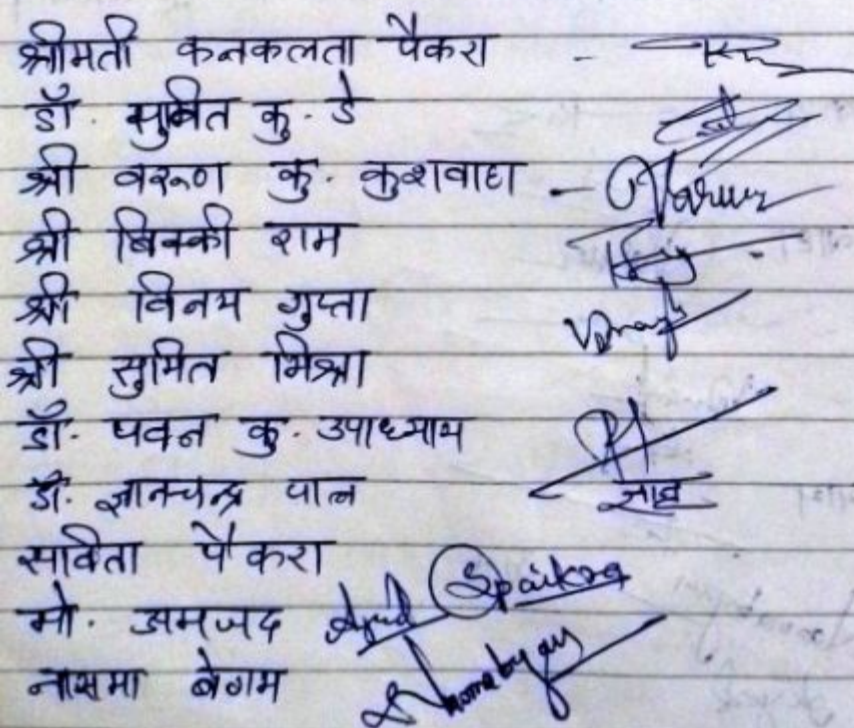 श्रीमती कनकलता पैकरा -
डॉ. सुवित कु. डे
श्री वरूण कु. कुशवाहा - Varun
श्री विक्की राम
श्री विनय गुप्ता
श्री सुमित मिश्रा
डॉ. पवन कु. उपाध्याय
डॉ. ज्ञानचन्द्र पाल
सविता पैकरा Spaikra
मो. अमजद
नासमा बेगम